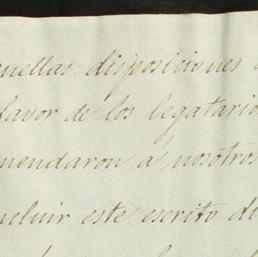 quellas disposiciones
favor de los legatario
mendaron á nosotros
cluir este escrito di